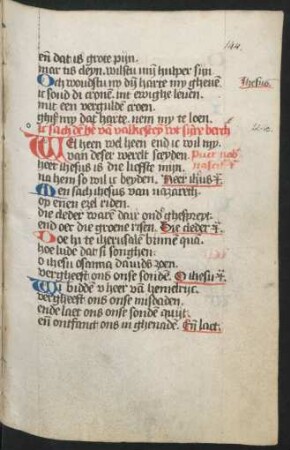 144.
en̄ dat is grote pijn.
mar tis cleyn. wilstu mij hulper sijn
Och woudstu my dijn harte my gheuen
ic soud di cronen int ewighe leuen.
mit een vergulde croen.
ghif my dat harte. nem my te loen.
Ic sach den
Wel heen wel heen end ic wil my.
van deser werelt sceyden.
Puer nob
heer ihesus is die liefste mijn.
nat
na hem so wil ic beyden. Heer ihūs
Men sach ihesus van nazareth.
op enen ezel riden.
die cleder ware daer onder ghespreyt.
end oec die groene risen. Die cleder
Doe hi te iherusalē binnē quā.
hoe lude dat si songhen.
O ihesu osanna dauids zoen.
vergheeft ons onse sonde. O ihesu
Wi bidde v heer vā hemelrijc.
vergheeft ons onse misdaden.
ende laet ons onse sondē quijt.
en̄ ontfanct ons in ghenade. En̄ laet
Ihesus